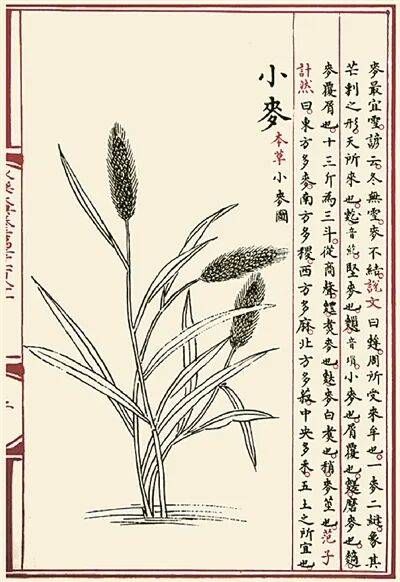 麥最宜雪諺云冬無雪麥不結說文曰周所受來牟也一麥二縫象其
芒刺之形天所來也音紇堅麥也音瑣小麥也屑覆也磨麥也
麥覆屑也十三斤為三斗從商聲煮麥也麥白煮也稍麥莖也范子
計然曰東方多麥南方多稷西方多麻北方多菽中央多禾五土之所宜也
小麥
本草小麥圖